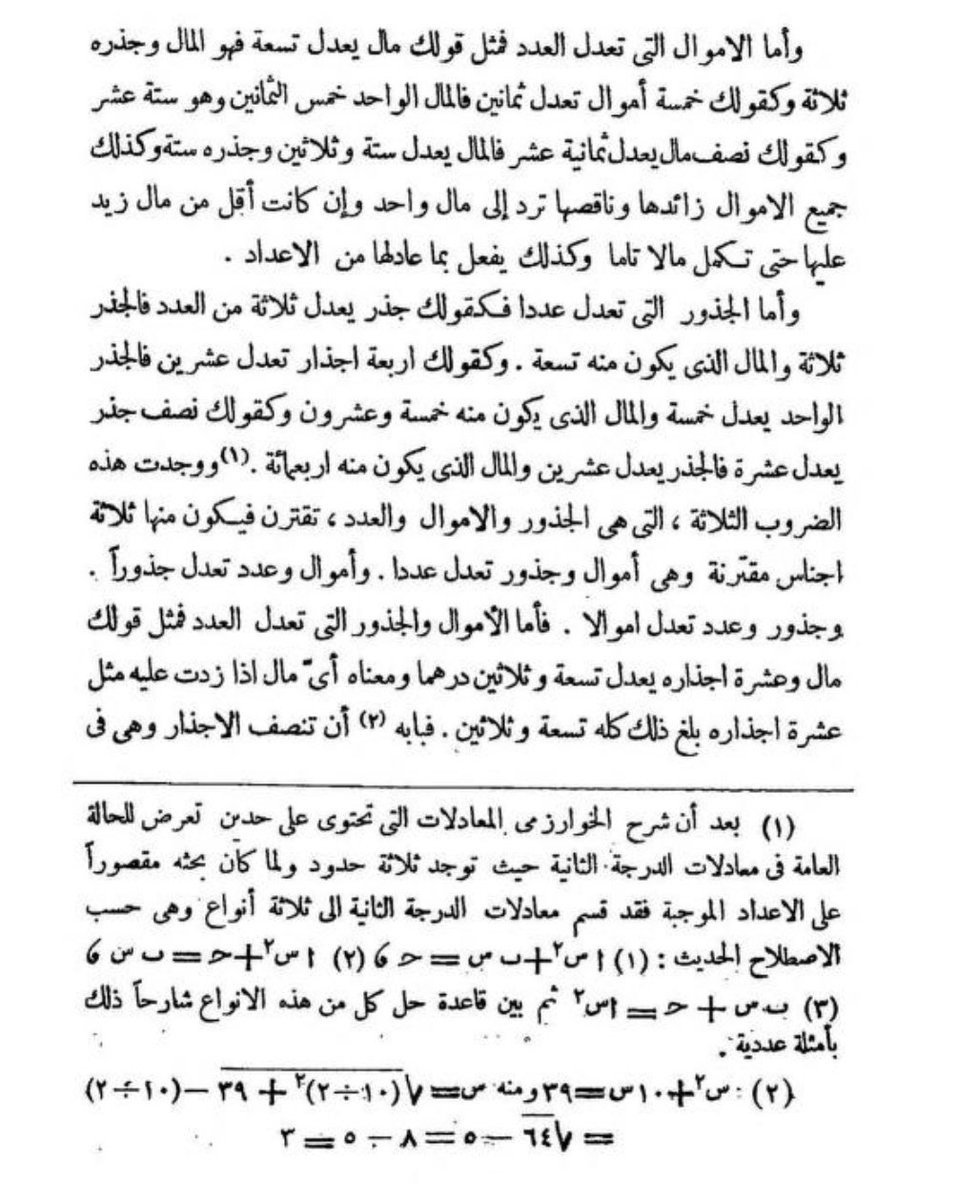 وأما الاموال التى تعدل العدد فمثل قولك مال يعدل تسعة فهو المال وجذره
ثلاثة وكقولك خمسة أموال تعدل ثمانين فالمال الواحد خمس الثمانين وهو ستة عشر
وكقولك نصف مال يعدل ثمانية عشر فالمال يعدل ستة وثلاثين وجذره ستة وكذلك
جميع الاموال زائدها وناقصها ترد إلى مال واحد وإن كانت أقل من مال زيد
عليها حتى تكمل مالا تاما وكذلك يفعل بما عادلها من الاعداد .
وأما الجذور التى تعدل عددا فكقولك جذر يعدل ثلاثة من العدد فالجذر
ثلاثة والمال الذى يكون منه تسعة . وكقولك اربعة اجذار تعدل عشرين فالجذر
الواحد يعدل خمسة والمال الذى يكون منه خمسة وعشرون وكقولك نصف جذر
يعدل عشرة فالجذر يعدل عشرين والمال الذى يكون منه اربعمائة .(١) ووجدت هذه
الضروب الثلاثة ، التى هى الجذور والاموال والعدد ، تقترن فيكون منها ثلاثة
اجناس مقترنة وهى أموال وجذور تعدل عددا . وأموال وعدد تعدل جذوراً .
وجذور وعدد تعدل اموالا . فأما الأموال والجذور التى تعدل العدد فمثل قولك
مال وعشرة اجذاره يعدل تسعة وثلاثين درهما ومعناه أىّ مال اذا زدت عليه مثل
عشرة اجذاره بلغ ذلك كله تسعة وثلاثين . فبابه (٢) أن تنصف الاجذار وهى فى
(١) بعد أن شرح الخوارزمى المعادلات التى تحتوى على حدين تعرض للحالة
العامة فى معادلات الدرجة الثانية حيث توجد ثلاثة حدود ولما كان بحثه مقصوراً
على الاعداد الموجبة فقد قسم معادلات الدرجة الثانية الى ثلاثة أنواع وهى حسب
الاصطلاح الحديث : (١) ا س٢ + ب س = حـ ، (٢) ا س٢ + حـ = ب س ،
(٣) ب س + حـ = ا س٢ ثم بين قاعدة حل كل من هذه الانواع شارحاً ذلك
بأمثلة عددية .
(٢) : س٢ + ١٠ س = ٣٩ ومنه س = √(١٠ ÷ ٢)٢ + ٣٩ − (١٠ ÷ ٢)
= √٦٤ − ٥ = ٨ − ٥ = ٣